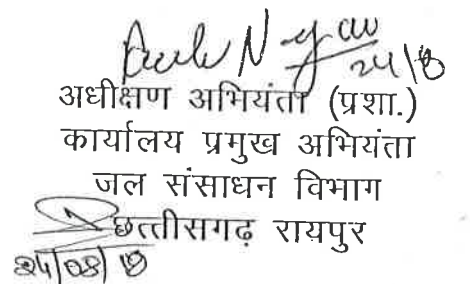 24/8
अधीक्षण अभियंता (प्रशा.)
कार्यालय प्रमुख अभियंता
जल संसाधन विभाग
छत्तीसगढ़ रायपुर
24/08/18